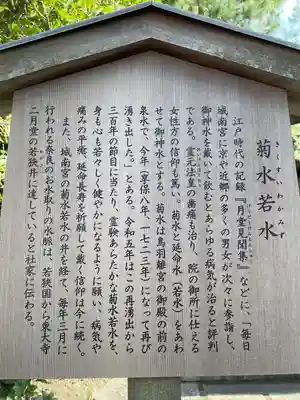 菊水若水
きくすいわかみず
江戸時代の記録『月堂見聞集』などに、「毎日
城南宮に京や近郷の多くの男女が次々に参詣し、
御神水を戴いて飲むとあらゆる病気が治ると評判
である。霊元法皇の歯痛も治り、院の御所に仕える
女性方の信仰も篤い。菊水と延命水（若水）をあわ
せて御神水とする。菊水は鳥羽離宮の御殿の前の
泉水で、今年（享保八年、一七二三年）になって再び
湧き出した。」とある。令和五年はこの再湧出から
三百年の節目に当たり、霊験あらたかな菊水若水を、
身も心も若々しく健やかになるように願い、病気や
痛みの平癒、延命長寿を祈願して戴く信仰は今に続く。
また、城南宮の菊水若水の井を経て、毎年三月に
行われる奈良のお水取りの水脈は、若狭国から東大寺
二月堂の若狭井に達していると社家に伝わる。